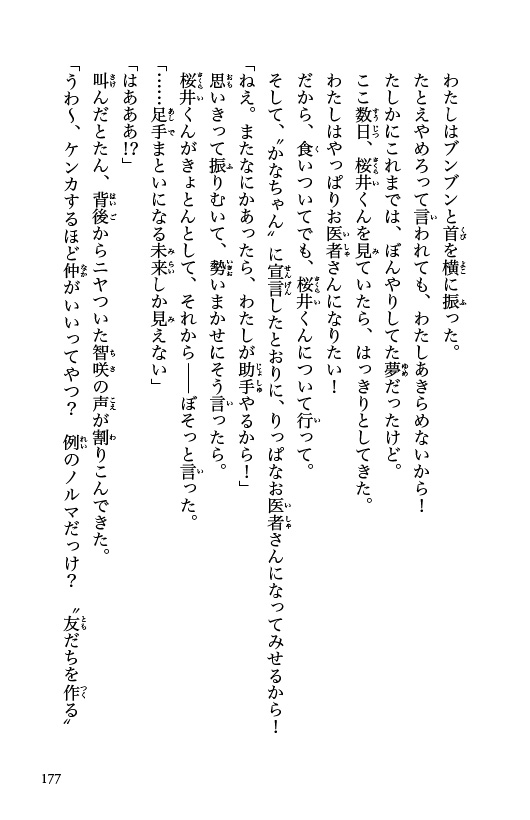 わたしはブンブンと首を横に振った。
たとえやめろって言われても、わたしあきらめないから！
たしかにこれまでは、ぼんやりしてた夢だったけど。
ここ数日、桜井くんを見ていたら、はっきりとしてきた。
わたしはやっぱりお医者さんになりたい！
だから、食いついてでも、桜井くんについて行って。
そして、〝かなちゃん〟に宣言したとおりに、りっぱなお医者さんになってみせるから！
「ねえ。またなにかあったら、わたしが助手やるから！」
思いきって振りむいて、勢いまかせにそう言ったら。
桜井くんがきょとんとして、それから――ぼそっと言った。
「……足手まといになる未来しか見えない」
「はあああ!?」
叫んだとたん、背後からニヤついた智咲の声が割りこんできた。
「うわ～、ケンカするほど仲がいいってやつ？　例のノルマだっけ？　〝友だちを作る〟
177